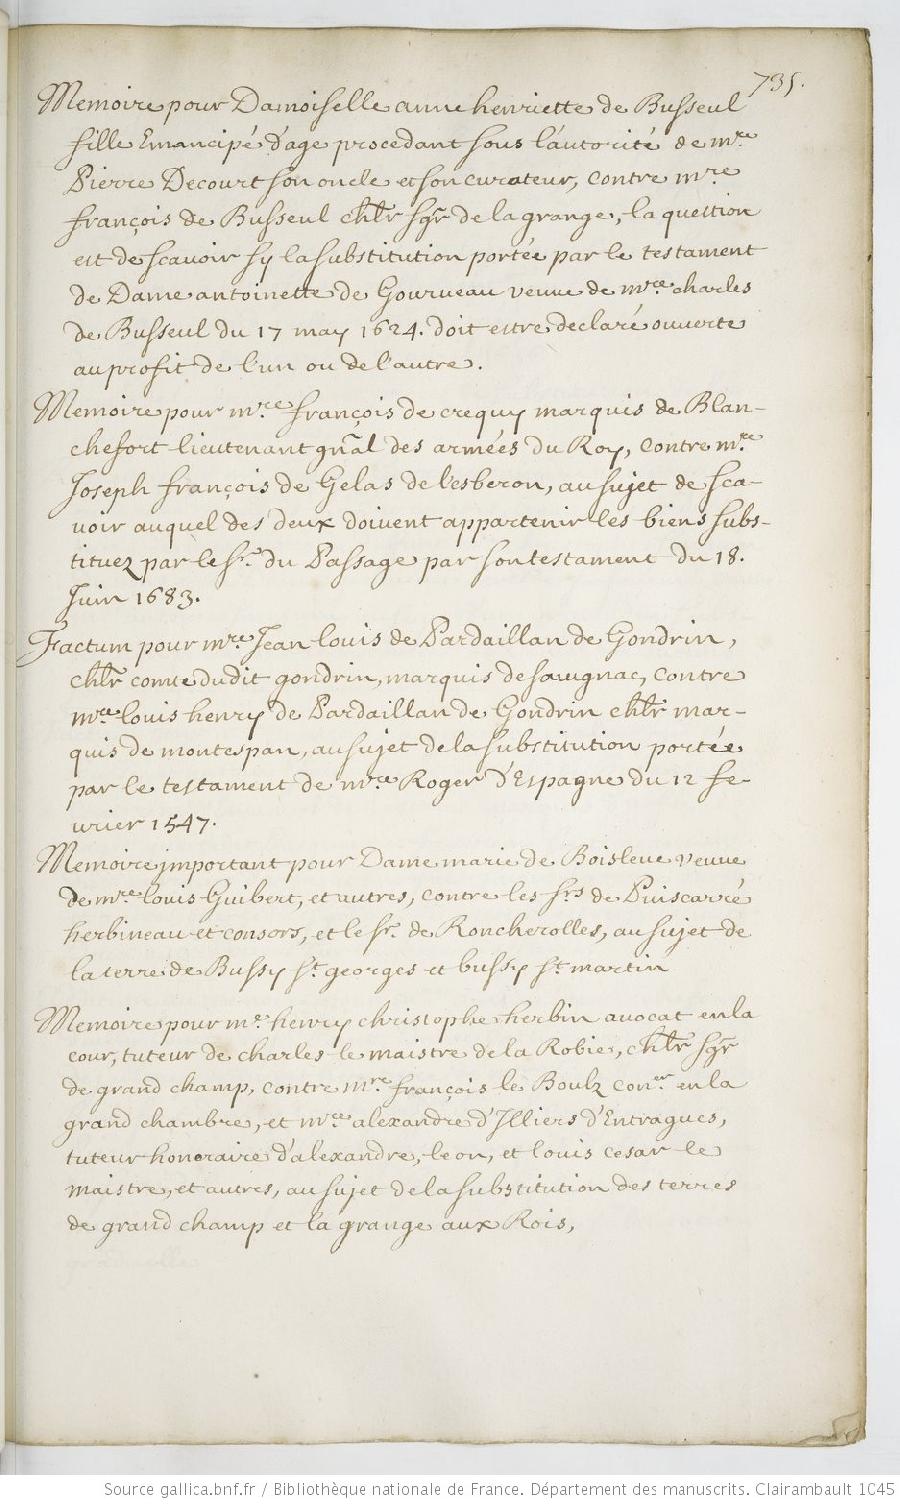 735.
Memoire pour Damoiselle anne henriette de Busseul
fille Emancipé d'age procedant sous l'autorité de mre
Pierre Decourt son oncle et son curateur, contre mre
françois de Busseul chlr sgr de la grange, la question
est de scavoir sy la substitution portée par le testament
de Dame antoinette de Gourveau veuue de mre charles
de Busseul du 17 may 1624. doit estre declaré ouverte
au profit de l'un ou de l'autre.
Memoire pour mre françois de crequy marquis de Blan-
chefort lieutenant gnal des armées du Roy, contre mre
Joseph françois de Gelas de lesberon, au sujet de sca-
voir auquel des deux doivent appartenir les biens subs-
tituez par le sr. du Passage par son testament du 18.
Juin 1683.
Factum pour mre Jean louis de Pardaillan de Gondrin,
chlr comte dudit gondrin, marquis de sauignac, contre
mre louis henry de Pardaillan de Gondrin chlr mar-
quis de montespan, au sujet de la substitution portée
par le testament de mre Roger d'Espagne du 12 fe-
urier 1547.
Memoire important pour Dame marie de Boisleue veuue
de mre louis Guibert, et autres, contre les srs de Puiscarré
herbineau et consors, et le sr. de Roncherolles, au sujet de
la terre de Bussy st. georges et bussy st. martin
Memoire pour me. henry christophe herbin avocat en la
cour, tuteur de charles le maistre de la Robie, chlr sgr
de grand champ, contre mre françois le Boulz coner en la
grand chambre, et mre alexandre d'Illiers d'Entragues,
tuteur honoraire d'alexandre, leon, et louis cesar le
maistre, et autres, au sujet de la substitution des terres
de grand champ et la grange aux Rois,
Source gallica.bnf.fr / Bibliothèque nationale de France. Département des manuscrits. Clairambault 1045